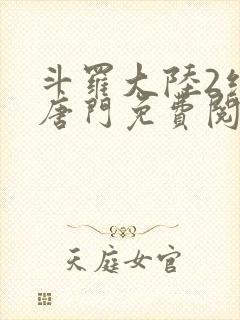 斗羅大陸2
唐門免費閱
天庭女官